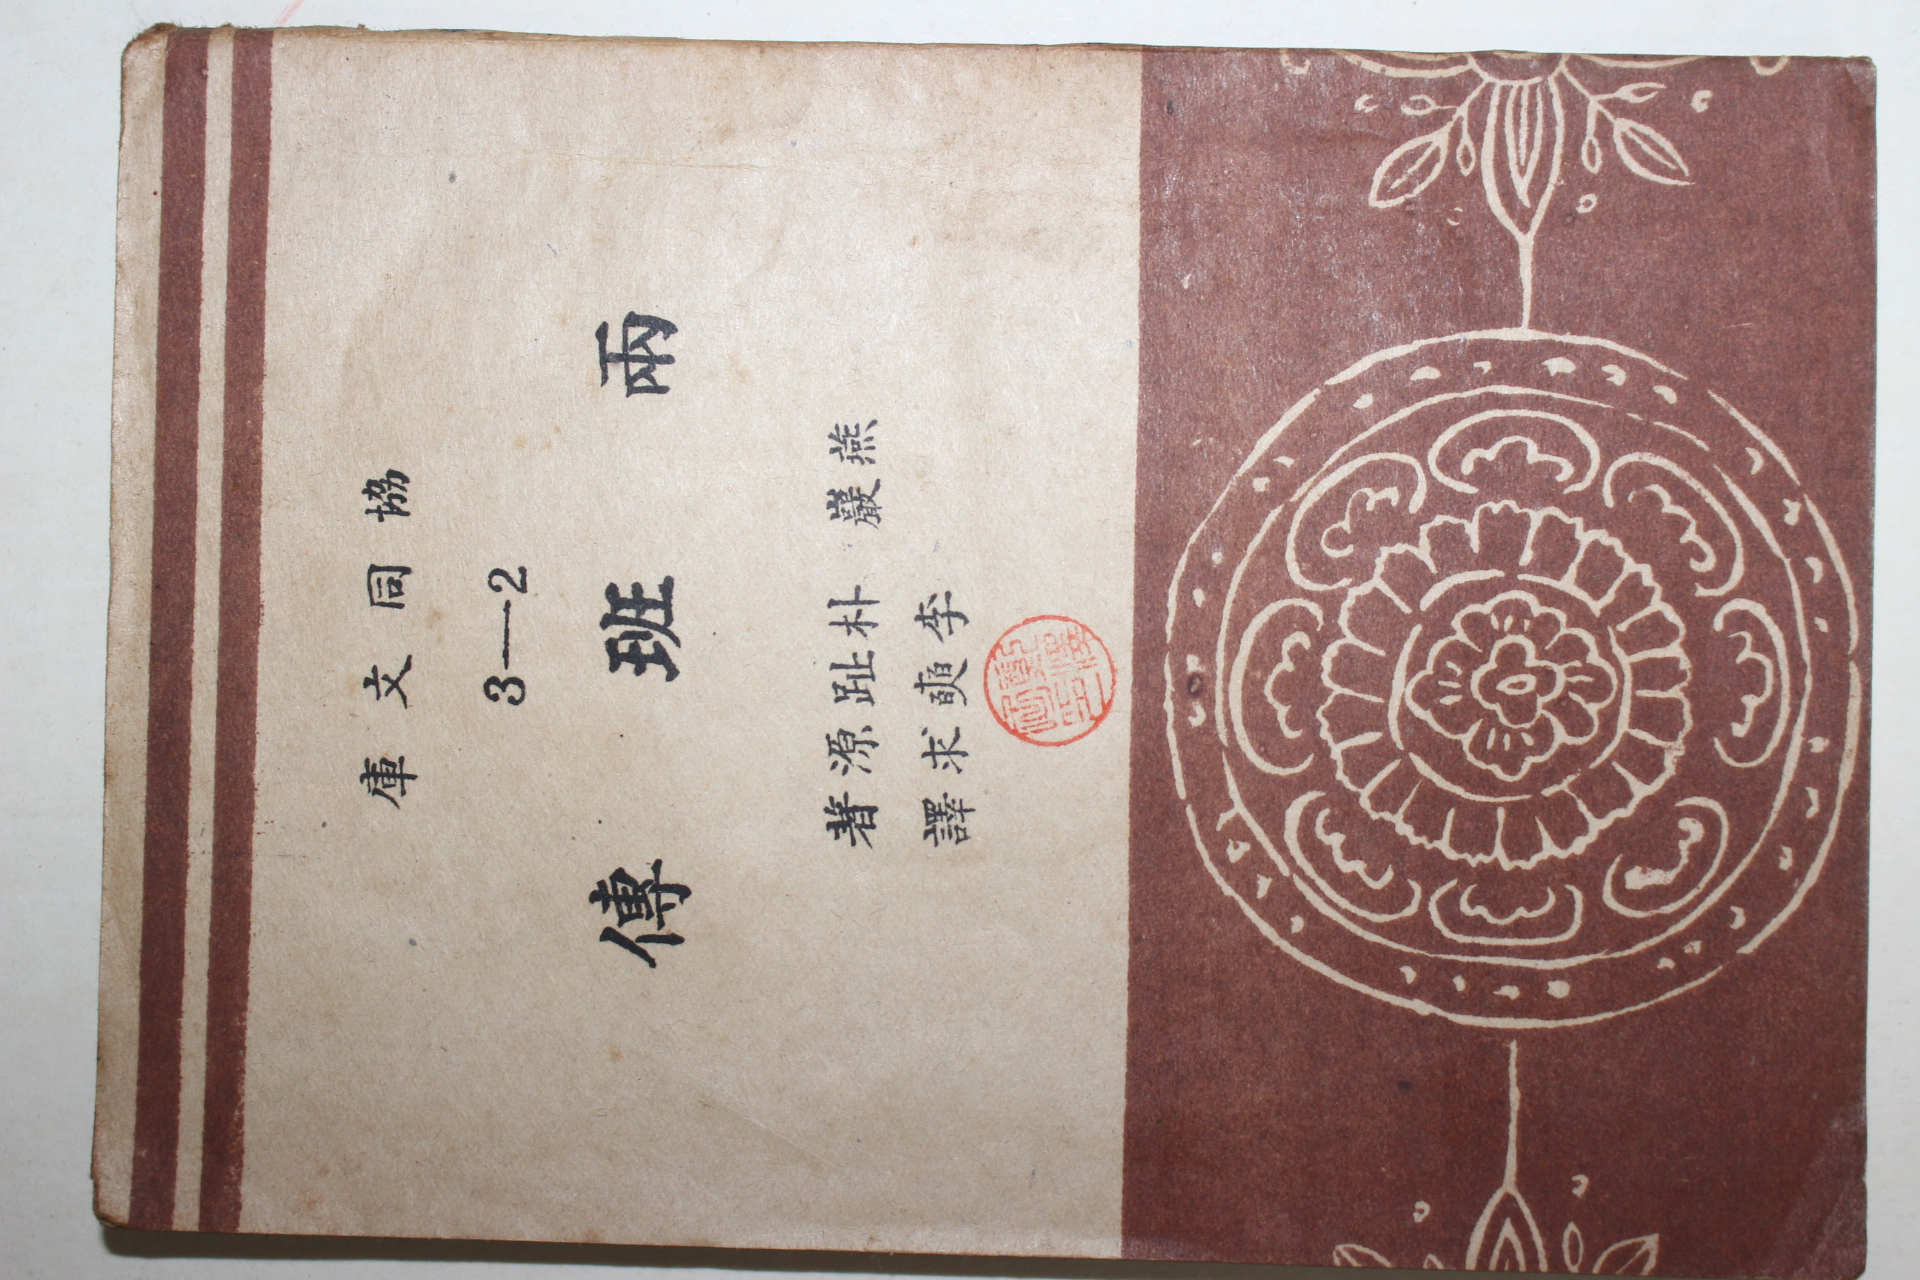 協同文庫
3—2
兩班傳
燕巖 朴趾源著
李奭求譯